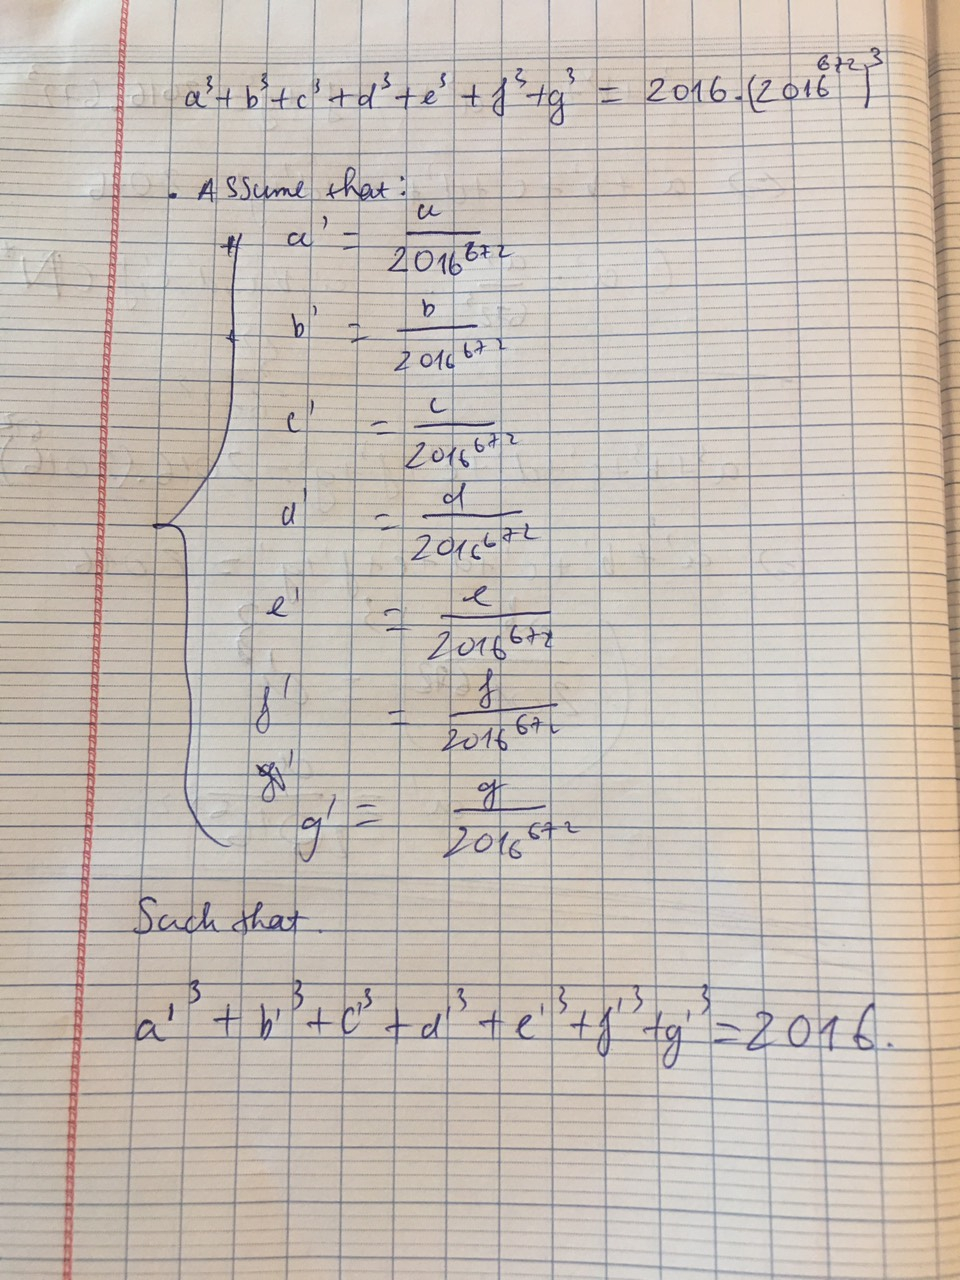 a³ + b³ + c³ + d³ + e³ + f³ + g³ = 2016.(2016⁶⁷²)³
. Assume that:
a' = a / 2016⁶⁷²
b' = b / 2016⁶⁷²
c' = c / 2016⁶⁷²
d' = d / 2016⁶⁷²
e' = e / 2016⁶⁷²
f' = f / 2016⁶⁷²
g' = g / 2016⁶⁷²
Such that.
a'³ + b'³ + c'³ + d'³ + e'³ + f'³ + g'³ = 2016.